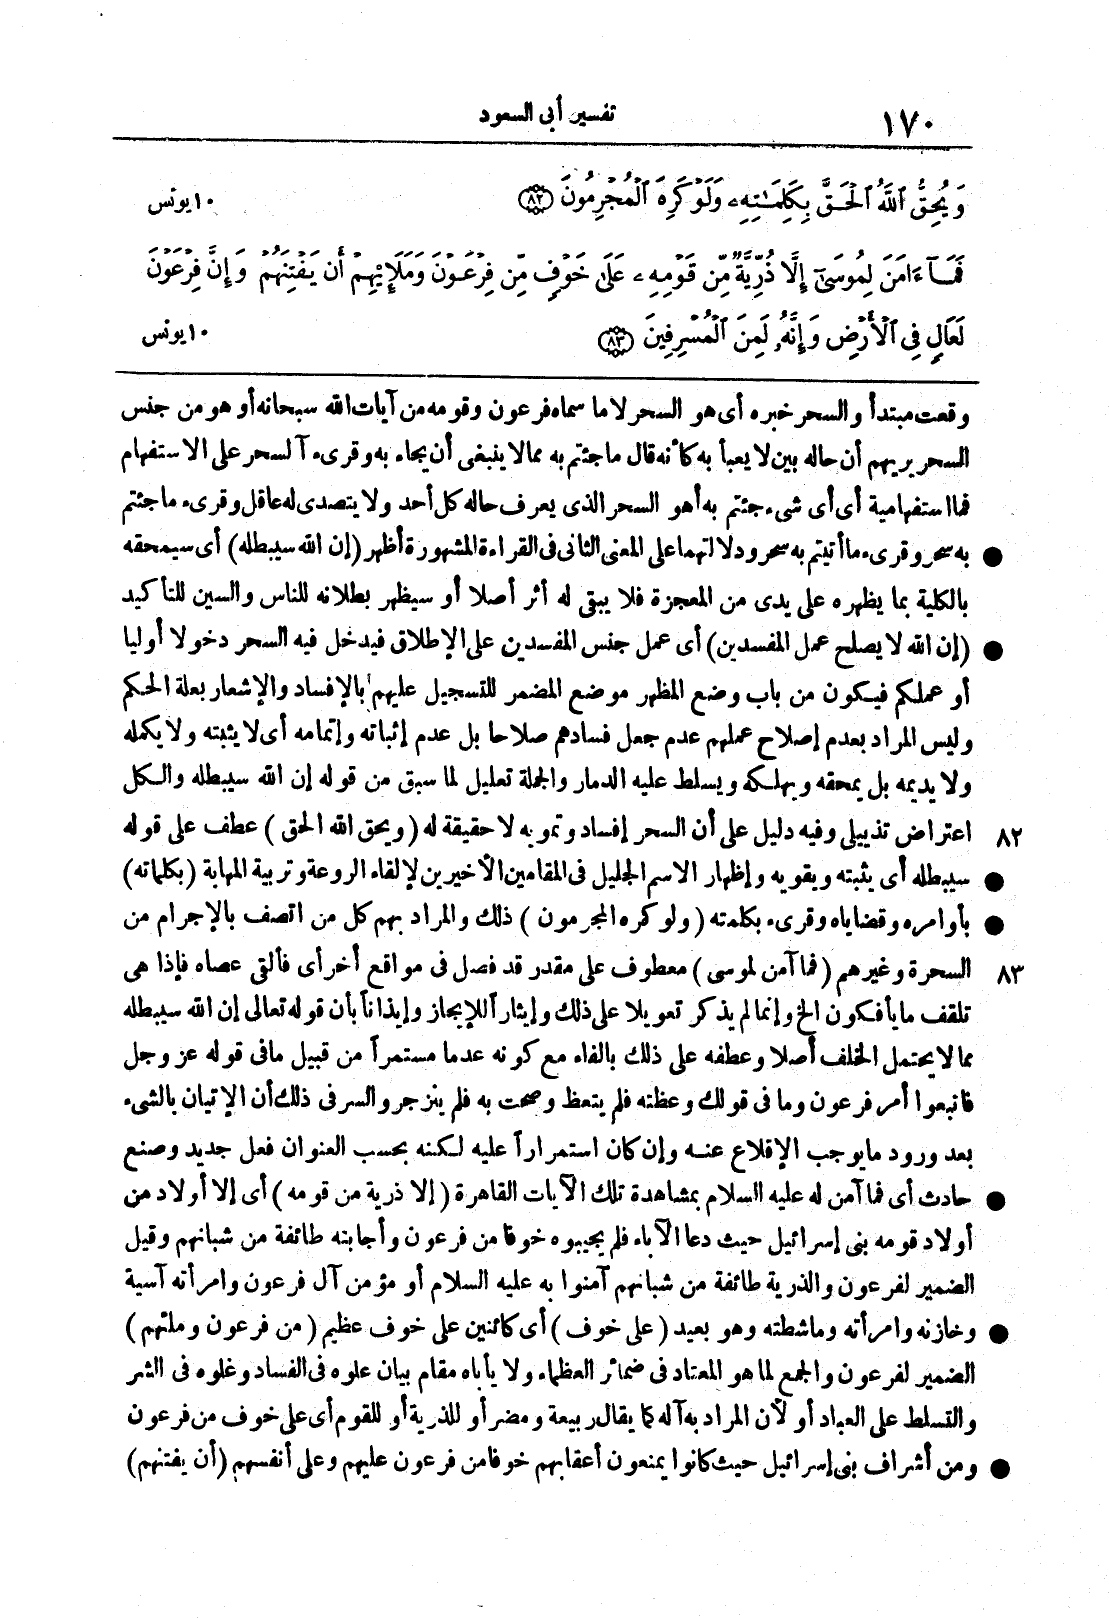 ١٧٠
تفسير أبى السعود
وَيُحِقُّ ٱللَّهُ ٱلْحَقَّ بِكَلِمَـٰتِهِۦ وَلَوْ كَرِهَ ٱلْمُجْرِمُونَ ﴿٨٢﴾
١٠ يونس
فَمَآ ءَامَنَ لِمُوسَىٰٓ إِلَّا ذُرِّيَّةٌ مِّن قَوْمِهِۦ عَلَىٰ خَوْفٍ مِّن فِرْعَوْنَ وَمَلَإِيْهِمْ أَن يَفْتِنَهُمْ وَإِنَّ فِرْعَوْنَ
لَعَالٍ فِى ٱلْأَرْضِ وَإِنَّهُۥ لَمِنَ ٱلْمُسْرِفِينَ ﴿٨٣﴾
١٠ يونس
وقعت مبتدأ والسحر خبره أى هو السحر لا ما سماه فرعون وقومه من آيات الله سبحانه أو هو من جنس
السحر يريهم أن حاله بين لا يعبأ به كأنه قال ما جئتم به مما لا ينبغى أن يجاء به وقرىء آلسحر على الاستفهام
فما استفهامية أى أى شىء جئتم به أهو السحر الذى يعرف حاله كل أحد ولا يتصدى له عاقل وقرىء ما جئتم
● به سحر وقرىء ما أتيتم به سحر ودلالتهما على المعنى الثانى فى القراءة المشهورة أظهر (إن الله سيبطله) أى سيمحقه
بالكلية بما يظهره على يدى من المعجزة فلا يبقى له أثر أصلا أو سيظهر بطلانه للناس والسين للتأكيد
● (إن الله لا يصلح عمل المفسدين) أى عمل جنس المفسدين على الإطلاق فيدخل فيه السحر دخولا أوليا
أو عملكم فيكون من باب وضع المظهر موضع المضمر للتسجيل عليهم بالإفساد والإشعار بعلة الحكم
وليس المراد بعدم إصلاح عملهم عدم جعل فسادهم صلاحا بل عدم إثباته وإتمامه أى لا يثبته ولا يكمله
ولا يديمه بل يمحقه ويهلكه ويسلط عليه الدمار والجملة تعليل لما سبق من قوله إن الله سيبطله والكل
٨٢ اعتراض تذييلى وفيه دليل على أن السحر إفساد وتمويه لا حقيقة له (ويحق الله الحق) عطف على قوله
● سيبطله أى يثبته ويقويه وإظهار الاسم الجليل فى المقامين الأخيرين لإلقاء الروعة وتربية المهابة (بكلماته)
● بأوامره وقضاياه وقرىء بكلمته (ولو كره المجرمون) ذلك والمراد بهم كل من اتصف بالإجرام من
٨٣ السحرة وغيرهم (فما آمن لموسى) معطوف على مقدر قد فصل فى مواقع أخر أى فألقى عصاه فإذا هى
تلقف ما يأفكون الخ وإنما لم يذكر تعويلا على ذلك وإيثاراً للإيجاز وإيذاناً بأن قوله تعالى إن الله سيبطله
مما لا يحتمل الخلف أصلا وعطفه على ذلك بالفاء مع كونه عدما مستمراً من قبيل ما فى قوله عز وجل
فاتبعوا أمر فرعون وما فى قولك وعظته فلم يتعظ وصحت به فلم ينزجر والسر فى ذلك أن الإتيان بالشىء
بعد ورود ما يوجب الإقلاع عنه وإن كان استمراراً عليه لكنه بحسب العنوان فعل جديد وصنع
● حادث أى فما آمن له عليه السلام بمشاهدة تلك الآيات القاهرة (إلا ذرية من قومه) أى إلا أولاد من
أولاد قومه بنى إسرائيل حيث دعا الآباء فلم يجيبوه خوفا من فرعون وأجابته طائفة من شبانهم وقيل
الضمير لفرعون والذرية طائفة من شبانهم آمنوا به عليه السلام أو مؤمن آل فرعون وامرأته آسية
● وخازنه وامرأته وماشطته وهو بعيد (على خوف) أى كائنين على خوف عظيم (من فرعون وملئهم)
الضمير لفرعون والجمع لما هو المعتاد فى ضمائر العظماء ولا يأباه مقام بيان علوه فى الفساد وغلوه فى الشر
والتسلط على العباد أو لأن المراد به آله كما يقال ربيعة ومضر أو للذرية أو للقوم أى على خوف من فرعون
● ومن أشراف بنى إسرائيل حيث كانوا يمنعون أعقابهم خوفا من فرعون عليهم وعلى أنفسهم (أن يفتنهم)